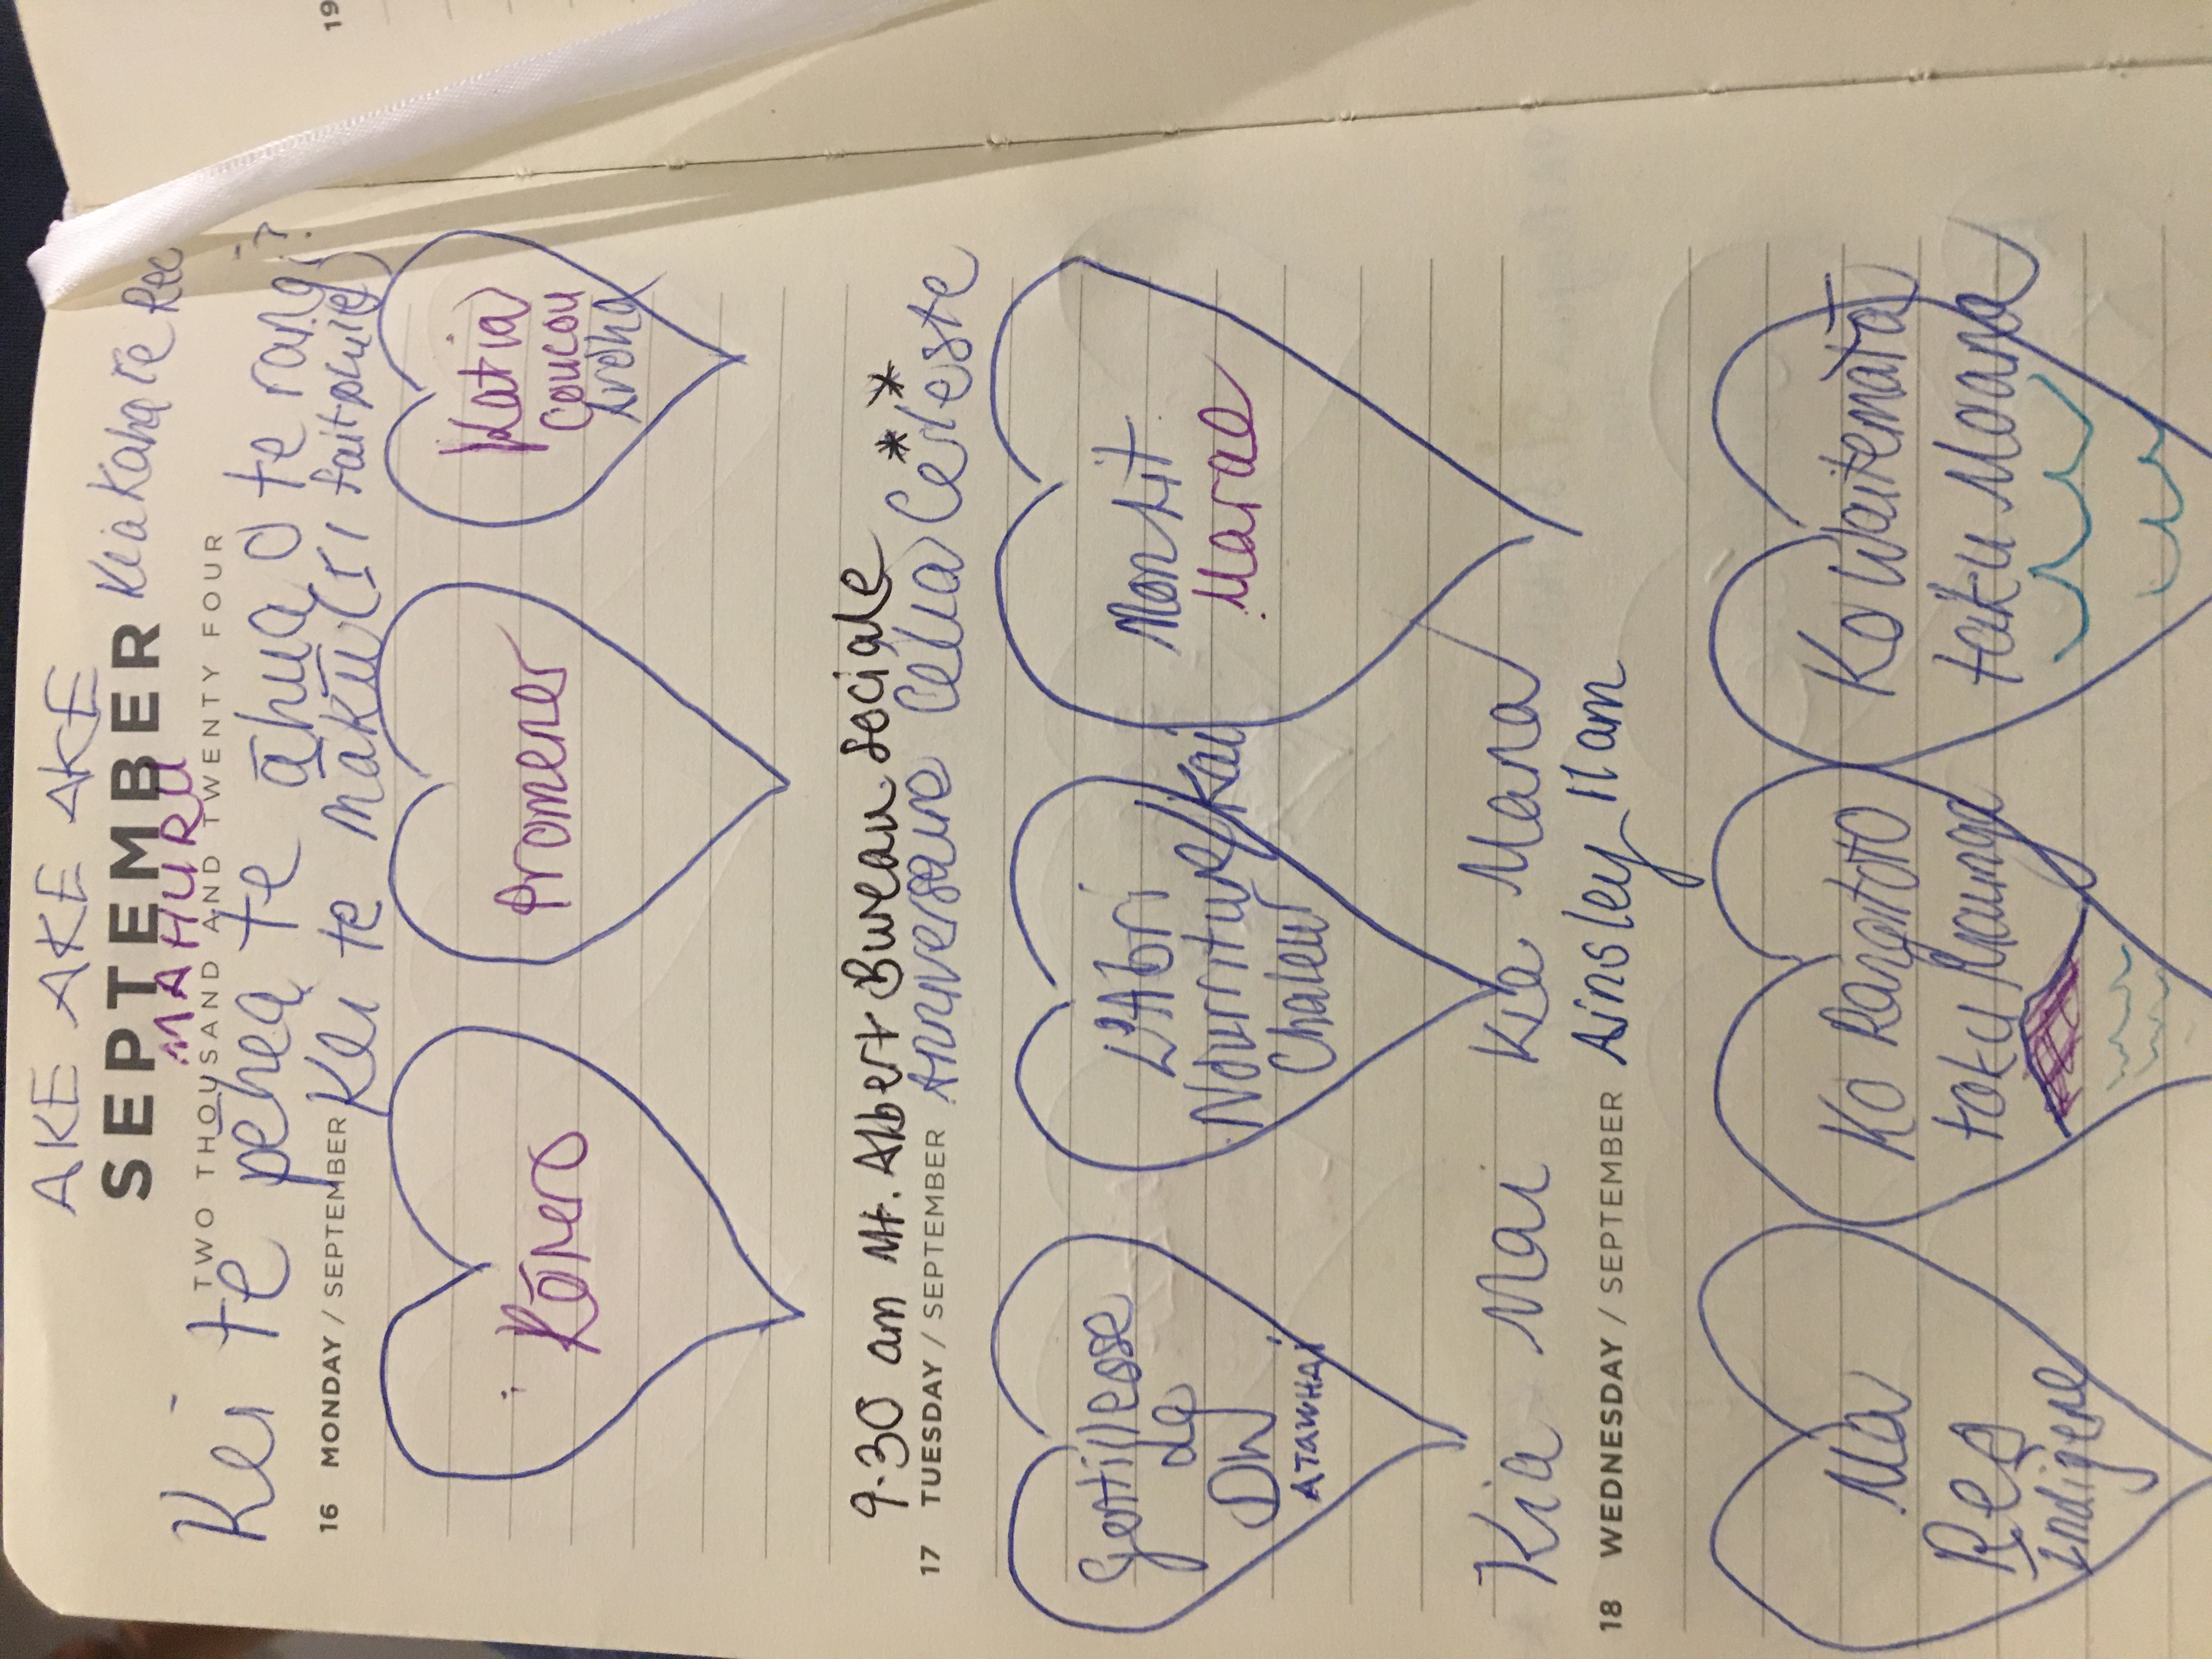 19
AKE AKE AKE
SEPTEMBER Kia Kaha te Reo
MAHURU
TWO THOUSAND AND TWENTY FOUR
Kei te pēhea te āhua o te rangi?
Kei te mākū (Il fait pluie)
16 MONDAY / SEPTEMBER
Promener
Katia
Coucou
9.30 am Mt. Albert Bureau sociale
17 TUESDAY / SEPTEMBER Anniversaire Celia Celeste
Gentillesse
de
DW
ATAWHAI
L'Abri
Nourriture/Kai
Chaleur
Mon Lit
Marae
Kia Mai Kia Mana
18 WEDNESDAY / SEPTEMBER Ainsley 11am
Ma
Res
Indigene
Ko Rangitoto
toku Maunga
Ko Waitematā
taku Moana